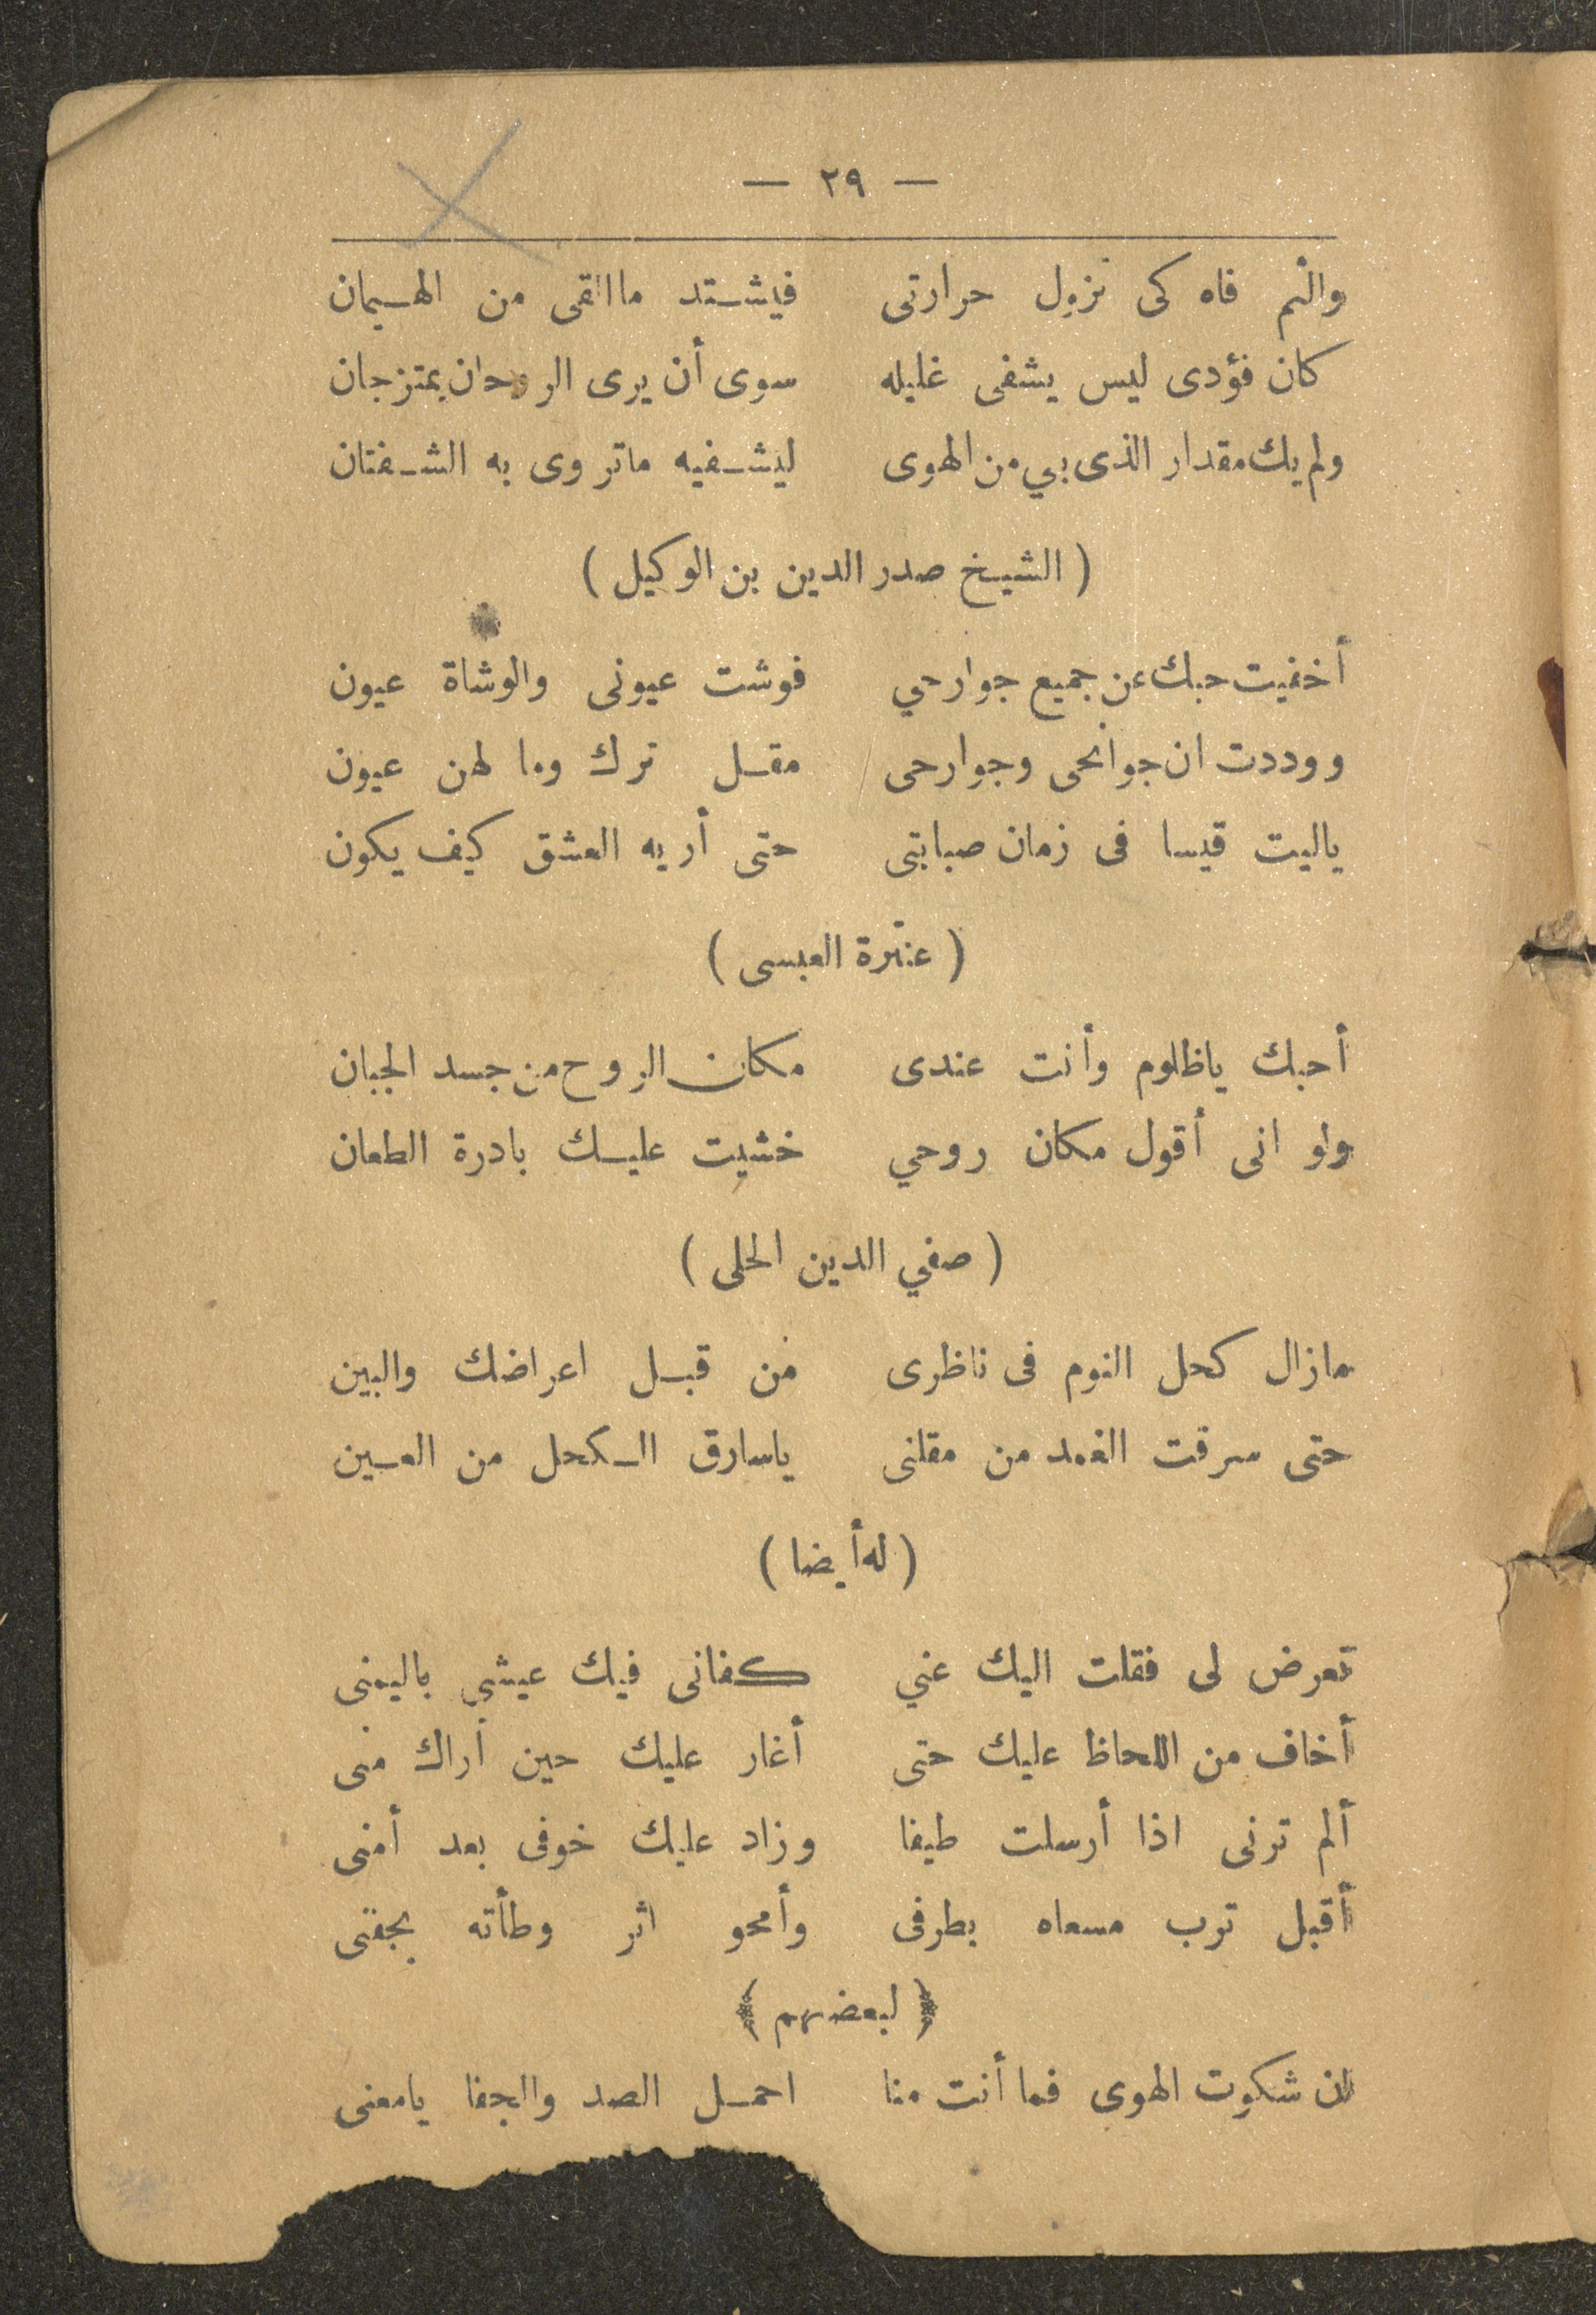 — ٢٩ —
والثم فاه كى تزول حرارتى فيشتد ماالقى من الهيمان
كان فؤدى ليس يشفى غليله سوى أن يرى الروحان يمتزجان
ولم يك مقدار الذى بي من الهوى ليشفيه ماتروى به الشفتان
( الشيخ صدر الدين بن الوكيل )
أخفيت حبك عن جميع جوارحي فوشت عيونى والوشاة عيون
ووددت ان جوانحى وجوارحى مقل ترك وما لهن عيون
ياليت قيسا فى زمان صبابتى حتى أريه العشق كيف يكون
( عنترة العبسى )
أحبك ياظلوم وأنت عندى مكان الروح من جسد الجبان
ولو انى أقول مكان روحي خشيت عليك بادرة الطعان
( صفي الدين الحلى )
مازال كحل النوم فى ناظرى من قبل اعراضك والبين
حتى سرقت الغمد من مقلتى ياسارق الكحل من العين
( له أيضا )
تعرض لى فقلت اليك عني كفانى فيك عيشي باليمنى
أخاف من اللحاظ عليك حتى أغار عليك حين أراك منى
ألم ترنى اذا أرسلت طيفا وزاد عليك خوفى بعد أمنى
أقبل ترب مسعاه بطرفى وأمحو اثر وطأته بجفنى
﴿ لبعضهم ﴾
ان شكوت الهوى فما أنت منا احمل الصد والجفا يامعنى